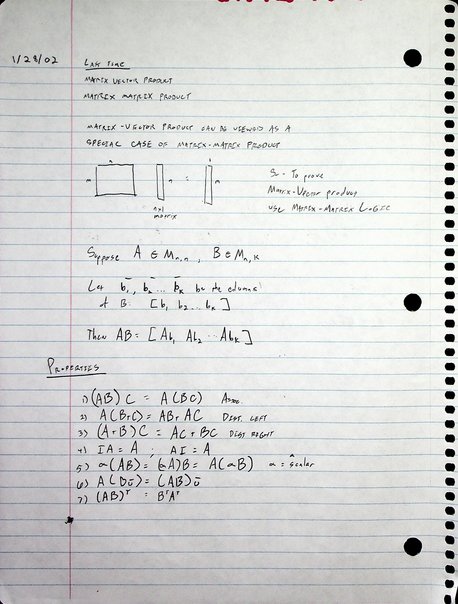 1/28/02
LAST TIME
MATRIX VECTOR PRODUCT
MATRIX MATRIX PRODUCT
MATRIX-VECTOR PRODUCT CAN BE VIEWED AS A
SPECIAL CASE OF MATRIX-MATRIX PRODUCT
n 1 1
m n = m
n×1
matrix
So - To prove
Matrix-Vector product
use MATRIX-MATRIX LOGIC
Suppose A ∈ Mm,n , B ∈ Mn,k
Let b̄1, b̄2 ... b̄k be the columns
of B: [b1 b2 ... bk]
Then AB = [Ab1 Ab2 ... Abk]
PROPERTIES
1) (AB)C = A(BC) Assoc.
2) A(B+C) = AB+AC DIST. LEFT
3) (A+B)C = AC+BC DIST RIGHT
4) IA = A , AI = A
5) α(AB) = (αA)B = A(αB) α = scalar
6) A(Bū) = (AB)ū
7) (AB)ᵀ = BᵀAᵀ